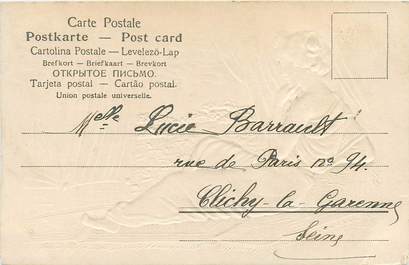 Carte Postale
Postkarte — Post card
Cartolina Postale — Levelező-Lap
Brefkort — Briefkaart — Brevkort
ОТКРЫТОЕ ПИСЬМО.
Tarjeta postal — Cartão postal.
Union postale universelle.
Melle Lucie Barrault
rue de Paris no 94.
Clichy-la-Garenne
Seine